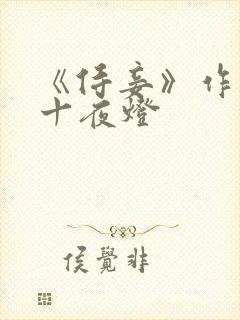 《侍妾》作
十夜燈
侯覺非